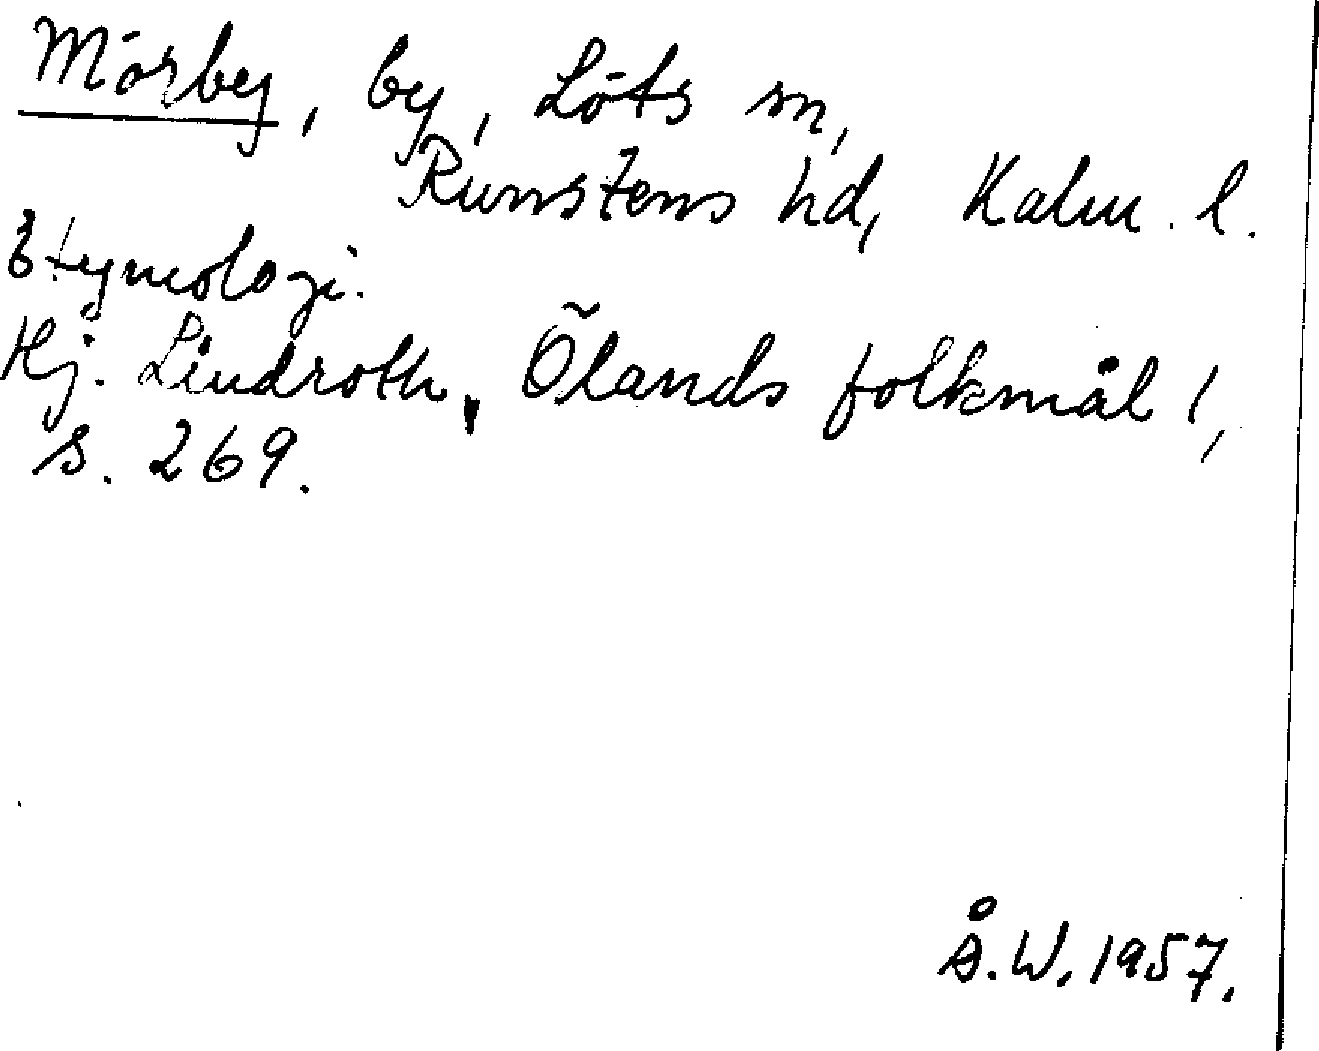 Mörby, by, Löts sn,
Runstens hd, Kalm. l.
Etymologi.
Hj. Lindroth, Ölands folkmål 1,
s. 269.
Å.W. 1957.